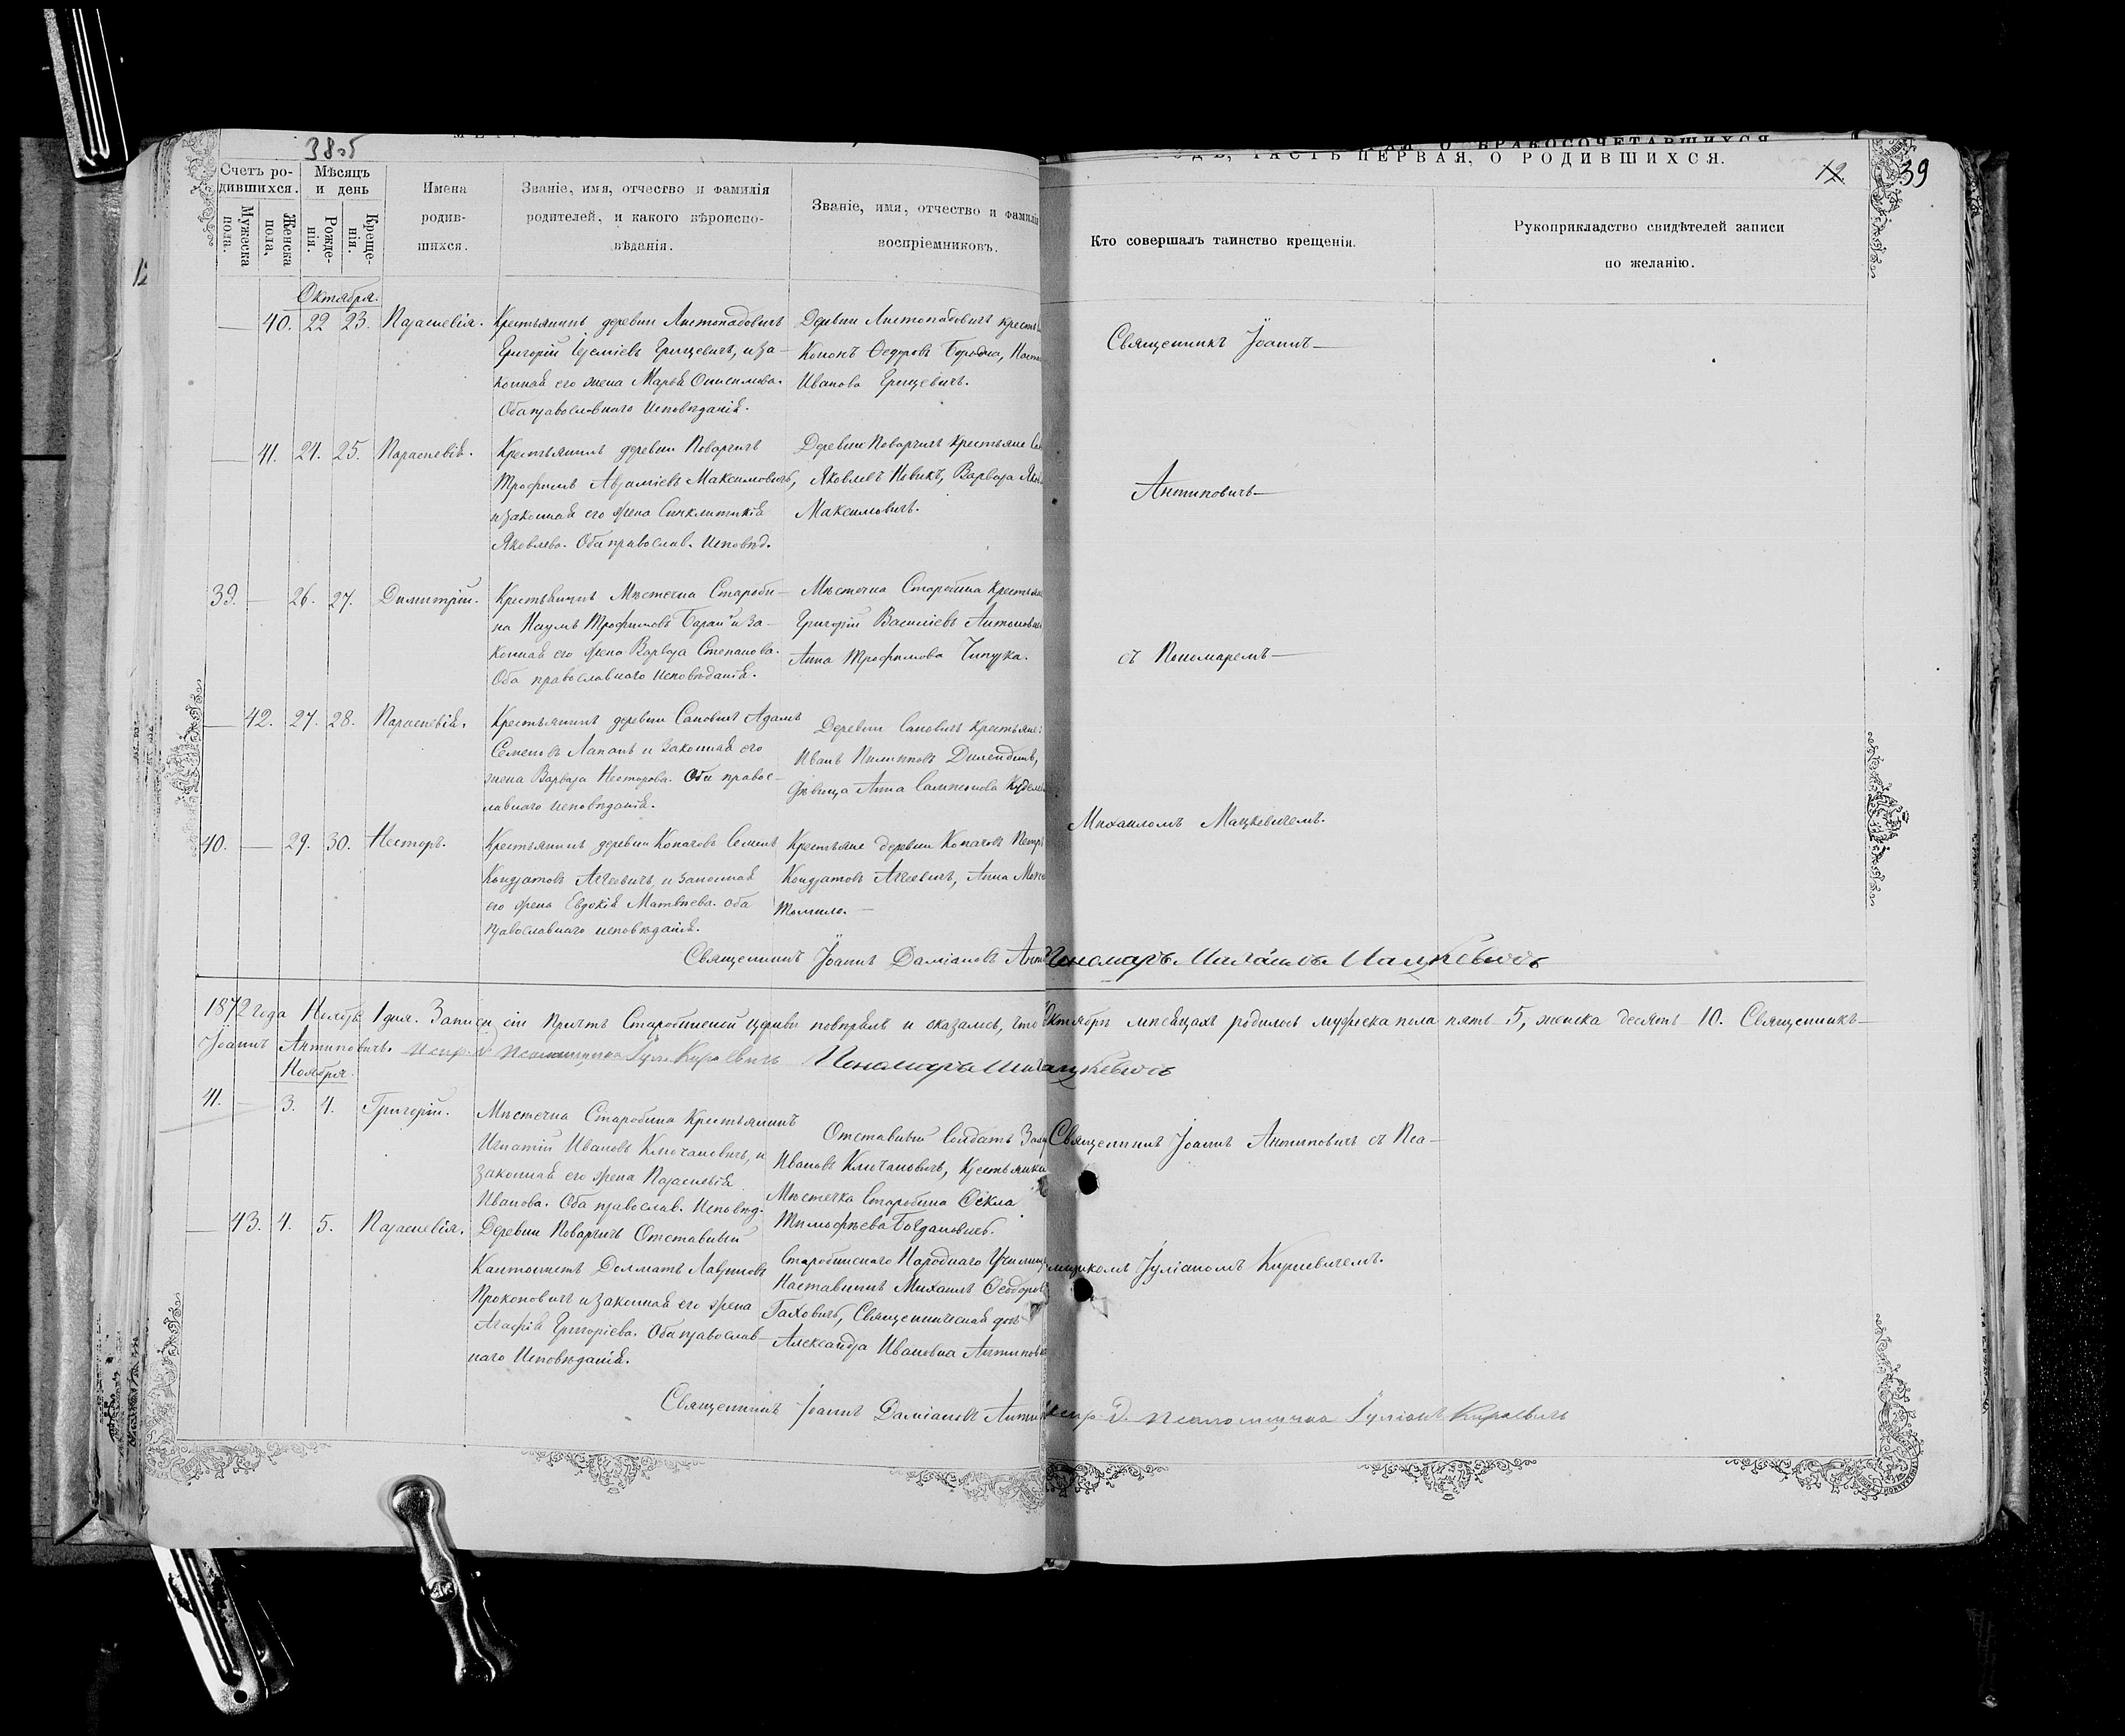 38об
О БРАКОСОЧЕТАВШИХСЯ
ЧАСТЬ ПЕРВАЯ, О РОДИВШИХСЯ.
12
39
Счетъ ро-
дившихся.
Мужеска пола.
Женска пола.
Мѣсяцъ
и день
Рожде-
нія.
Креще-
нія.
Имена
родив-
шихся.
Званіе, имя, отчество и фамилія
родителей, и какого вѣроиспо-
вѣданія.
Званіе, имя, отчество и фамилія
воспріемниковъ.
Кто совершалъ таинство крещенія.
Рукоприкладство свидѣтелей записи
по желанію.
Октября.
— 40. 22 23. Параскевія.
Крестьянинъ деревни Листопадовичъ
Григорій Іереміевъ Грицевичъ, и за-
конная его жена Марья Онисимова.
Оба православнаго исповѣданія.
Деревни Листопадовичъ крестья
Кононъ Ѳедоровъ Бородка, Наст
Иванова Грицевичъ.
Священникъ Іоаннъ —
— 41. 24. 25. Параскевія.
Крестьянинъ деревни Поварчичъ
Трофимъ Аврамiевъ Максимовичъ,
и законная его жена Синклитикія
Яковлева. Оба православ. исповѣд.
Деревни Поварчичъ крестьяне
Яковлевъ Новикъ, Варвара Яков
Максимовичъ.
Антиповичъ —
39. — 26. 27. Димитрій.
Крестьянинъ Мѣстечка Староби-
на Наумъ Трофимовъ Баранъ и за-
конная его жена Варвара Степанова.
Оба православнаго исповѣданія.
Мѣстечка Старобина крестьяне
Григорій Василіевъ Антонович
Анна Трофимова Чипурка.
съ Пономаремъ —
— 42. 27. 28. Параскевія.
Крестьянинъ деревни Саковичъ Адамъ
Семеновъ Лапанъ и законная его
жена Варвара Несторова. Оба правос-
лавнаго исповѣданія.
Деревни Саковичъ крестьяне:
Иванъ Пилиповъ
дѣвица Анна
Михаиломъ Мацкевичемъ.
40. — 29. 30. Несторъ.
Крестьянинъ деревни Копачовъ Семенъ
Кондратовъ Агеевичъ, и законная
его жена Евдокія Матвѣева. Оба
православнаго исповѣданія.
Крестьяне деревни Копачовъ Петръ
Кондратовъ Агеевичъ, Анна
Томило. —
Священникъ Іоаннъ Даміановъ Анти
Пономарь Михаилъ Мацкевичъ
1872 года Ноября 1 дня. Записи сіи Причтъ Старобинской церкви повѣрялъ и оказалось, что Октябрѣ мѣсяцахъ родилось мужеска пола пять 5, женска десять 10. Священникъ —
Іоаннъ Антиповичъ. Испр. д. Псаломщика Іул. Киркевичъ Пономарь Михаилъ Мацкевичъ
Ноября.
41. — 3. 4. Григорій.
Мѣстечка Старобина Крестьянинъ
Игнатій Ивановъ Ключановичъ, и
законная его жена Параскевія
Иванова. Оба православ. исповѣд.
Отставный Солдатъ
Ивановъ Ключановичъ, крестьянка
Мѣстечка Старобина Ѳекла
Тимофѣева Богдановичъ.
Священникъ Іоаннъ Антиповичъ съ Пса-
— 43. 4. 5. Параскевія.
Деревни Поварчичъ Отставный
Кантонистъ Долматъ Лавриновъ
Прокоповичъ и законная его жена
Агафія Григоріева. Оба православ-
наго исповѣданія.
Старобинскаго Народнаго Училищ
Наставникъ Михаилъ Ѳеодоров
Гаховичъ, Священническая дочь
Александра Ивановна Антипов
мщикомъ Іуліаномъ Киркевичемъ.
Священникъ Іоаннъ Даміановъ Анти
Испр. д. Псаломщика Іуліанъ Киркевичъ